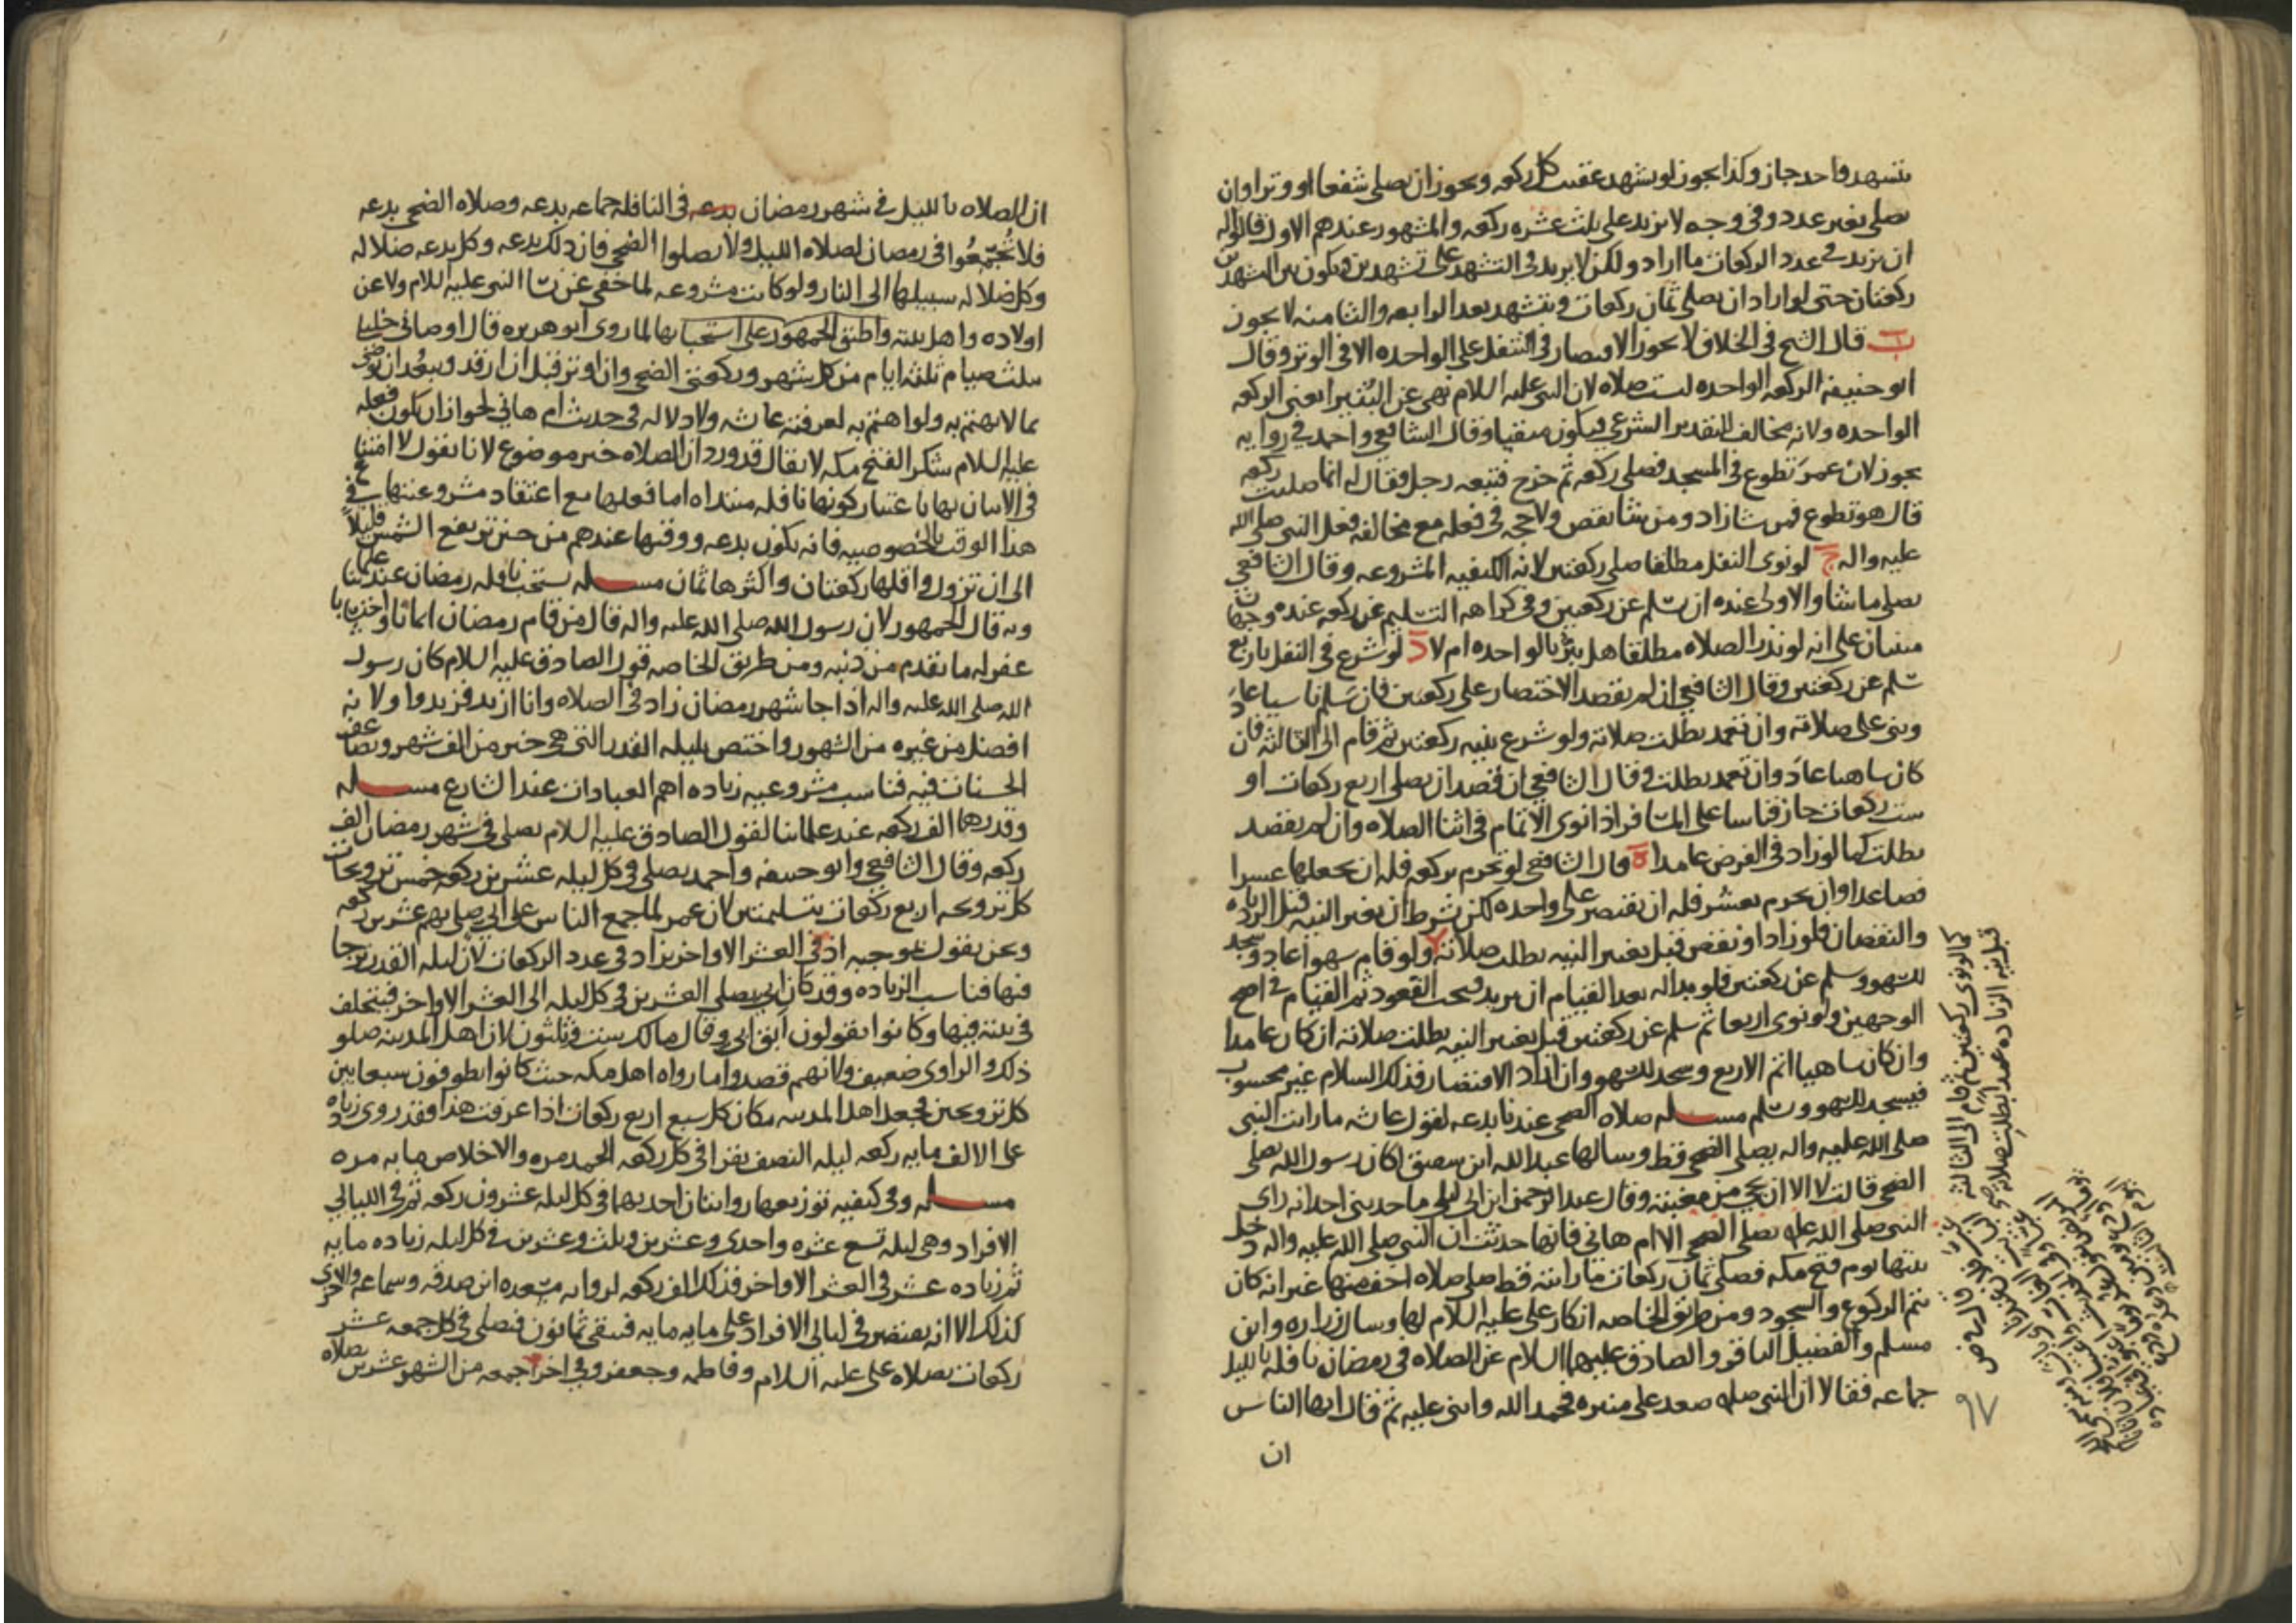 بتشهد واحد جاز وكذا يجوز لو تشهد عقيب كل ركعه ويجوز ان يصلي شفعا او وترا وان
يصلي بغير عدد وفي وجه لا يزيد على ثلث عشره ركعه والمشهور عندهم الاول قالوا له
ان يزيد في عدد الركعات ما اراد ولكن لا يزيد في التشهد على تشهدين ويكون بين التشهدين
ركعتان حتى لو اراد ان يصلي ثمان ركعات ويتشهد بعد الرابعه والثامنه لا يجوز
ب قال الشيخ في الخلاف لا يجوز الاقتصار في التنفل على الواحده الا في الوتر وقال
ابو حنيفه الركعه الواحده ليست صلاه لان النبي عليه السلام نهى عن البتيرا يعني الركعه
الواحده ولانه مخالف للتقدير الشرعي فيكون منفيا وقال الشافعي واحمد في روايه
يجوز لان عمر تطوع في المسجد فصلى ركعه ثم خرج فتبعه رجل فقال له انما صليت ركعه
قال هو تطوع فمن شا زاد ومن شا نقص ولا حجه في فعله مع مخالفه فعل النبي صلى الله
عليه واله ج لو نوى النفل مطلقا صلى ركعتين لانه الكيفيه المشروعه وقال الشافعي
يصلي ما شا والاولى عنده ان يسلم عن ركعتين وفي كراهه التسليم عن ركعه عنده وجهان
مبنيان على انه لو نذر الصلاه مطلقا هل يبر بالواحده ام لا د لو شرع في النفل باربع
سلم عن ركعتين وقال الشافعي ان لم يقصد الاختصار على ركعتين فان سلم ناسيا عاد
وبنى على صلاته وان تعمد بطلت صلاته ولو شرع بنيه ركعتين ثم قام الى الثالثه فان
كان ساهيا عاد وان تعمد بطلت وقال الشافعي ان قصد ان يصلي اربع ركعات او
ست ركعات جاز قياسا على المسافر اذا نوى الاتمام في اثنا الصلاه وان لم يقصد
بطلت كما لو زاد في الفرض عامدا ه قال الشافعي لو تحرم بركعه فله ان يجعلها عشرا
فصاعدا وان تحرم بعشر فله ان يقتصر على واحده لكن بشرط ان يغير النيه قبل الزياده
والنقصان فلو زاد او نقص قبل تغيير النيه بطلت صلاته ولو قام سهوا عاد وسجد
للسهو وسلم عن ركعتين فلو بدا له بعد القيام ان يزيد وجب القعود ثم القيام في اصح
الوجهين ولو نوى اربعا ثم سلم عن ركعتين قبل تغيير النيه بطلت صلاته ان كان عامدا
وان كان ساهيا اتم الاربع وسجد للسهو وان اراد الاقتصار فذلك السلام غير محسوب
فيسجد للسهو ويسلم مسله صلاه الضحى عندنا بدعه لقول عايشه ما رايت النبي
صلى الله عليه واله يصلي الضحى قط وسالها عبدالله ابن شقيق اكان رسول الله يصلي
الضحى قالت لا الا ان يجي من مغيبه وقال عبد الرحمن ابن ابي ليلى ما حدثني احد انه راى
النبي صلى الله عليه يصلي الضحى الا ام هاني فانها حدثت ان النبي صلى الله عليه واله دخل
بيتها يوم فتح مكه فصلى ثمان ركعات ما رايته قط صلى صلاه اخف منها غير انه كان
يتم الركوع والسجود ومن طريق الخاصه انكار علي عليه السلام لها وسال زراره وابن
مسلم والفضيل الباقر والصادق عليهما السلام عن الصلاه في رمضان نافله بالليل
جماعه فقالا ان النبي صله صعد على منبره فحمد الله واثنى عليه ثم قال ايها الناس
ان
كما لو نوى ركعتين ثم قام الى الثالثه
قبل نيه الزياده عمدا بطلت صلاته
٩٧
ان الصلاه بالليل في شهر رمضان في النافله جماعه بدعه وصلاه الضحى بدعه
فلا تجتمعوا في رمضان لصلاه الليل ولا تصلوا الضحى فان ذلك بدعه وكل بدعه ضلاله
وكل ضلاله سبيلها الى النار ولو كانت مشروعه لما خفي عن نسا النبي عليه السلام ولا عن
اولاده واهل بيته واطبق الجمهور على استحبابها لما روى ابو هريره قال اوصاني خليلي
بثلث صيام ثلثه ايام من كل شهر وركعتي الضحى وان اوتر قبل ان ارقد ويبعد ان يوصي
بما لا يهتم به ولو اهتم به لعرفته عايشه ولا دلاله في حديث ام هاني لجواز ان يكون فعله
عليه السلام شكرا لفتح مكه لا يقال قد ورد ان الصلاه خير موضوع لانا نقول لا امتناع
في الاتيان بها باعتبار كونها نافله مبتداه اما فعلها مع اعتقاد مشروعيتها في
هذا الوقت بالخصوصيه فانه يكون بدعه ووقتها عندهم من حين ترتفع الشمس قليلا
الى ان تزول واقلها ركعتان واكثرها ثمان مسله يستحب نافله رمضان عند علمائنا
وبه قال الجمهور لان رسول الله صلى الله عليه واله قال من قام رمضان ايمانا واحتسابا
غفر له ما تقدم من ذنبه ومن طريق الخاصه قول الصادق عليه السلام كان رسول
الله صلى الله عليه واله اذا جا شهر رمضان زاد في الصلاه وانا ازيد فزيدوا ولانه
افضل من غيره من الشهور واختص بليله القدر التي هي خير من الف شهر وتضاعف
الحسنات فيه فناسب مشروعيه زياده اهم العبادات عند الشارع مسله
وقدرها الف ركعه عند علمائنا لقول الصادق عليه السلام يصلي في شهر رمضان الف
ركعه وقال الشافعي وابو حنيفه واحمد يصلي في كل ليله عشرين ركعه خمس ترويحات
كل ترويحه اربع ركعات بتسليمتين لان عمر لما جمع الناس على ابي صلى بهم عشرين ركعه
ونحن نقول بموجبه اذ في العشر الاواخر يزاد في عدد الركعات لان ليله القدر ترجا
فيها فناسب الزياده وقد كان ابي يصلي العشرين في كل ليله الى العشر الاواخر فيتخلف
في بيته فيها وكانوا يقولون ابق ابي وقال مالك ست وثلثون لان اهل المدينه صلو
ذلك والراوي ضعيف ولانهم قصدوا مساواه اهل مكه حيث كانوا يطوفون سبعا بين
كل ترويحتين فجعل اهل المدينه مكان كل سبع اربع ركعات اذا عرفت هذا فقد روي زياده
على الالف مايه ركعه ليله النصف يقرا في كل ركعه الحمد مره والاخلاص مايه مره
مسله وفي كيفيه توزيعها روايتان احديهما في كل ليله عشرون ركعه ثم في الليالي
الافراد وهي ليله تسع عشره واحدى وعشرين وثلث وعشرين في كل ليله زياده مايه
ثم زياده عشر في العشر الاواخر فذلك الف ركعه لروايه مسعده ابن صدقه وسماعه والاخرى
كذلك الا انه يقتصر في ليالي الافراد على مايه مايه فيبقى ثمانون فيصلي في كل جمعه عشر
ركعات بصلاه علي عليه السلام وفاطمه وجعفر وفي اخر جمعه من الشهر عشرين بصلاه